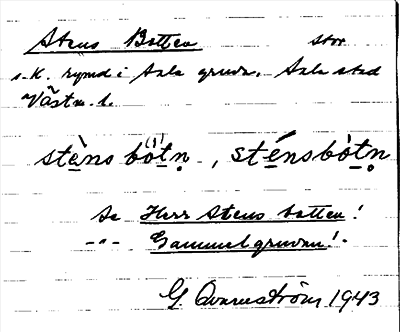 Stens Botten stor
s.k. rymd i Sala gruva, Sala stad
Västm. l.
stènsbò̀tn̥, sténsbòtn̥
Se Herr Stens botten!
–"– Gammelgruvan!
G. Qvarnström 1943